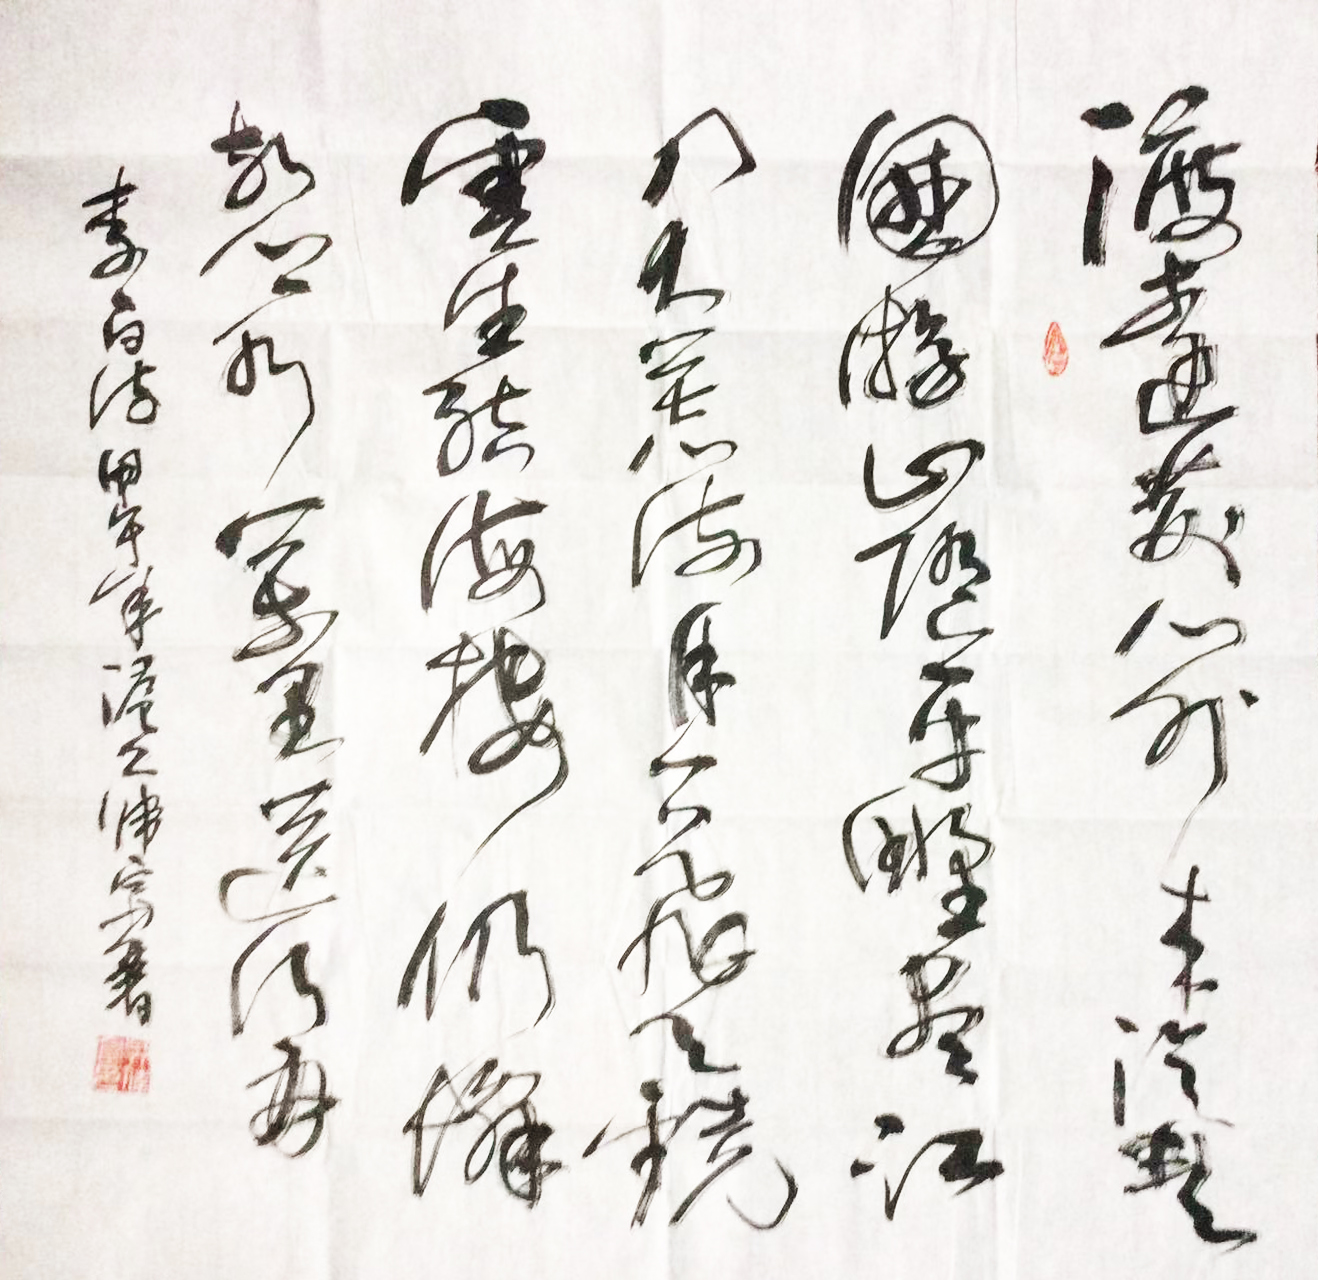 渡遠荊門外来從楚
國游山隨平野盡江
入大荒流月下飛天鏡
雲生結海樓仍憐
故鄉水萬里送行舟
李白诗甲午年書